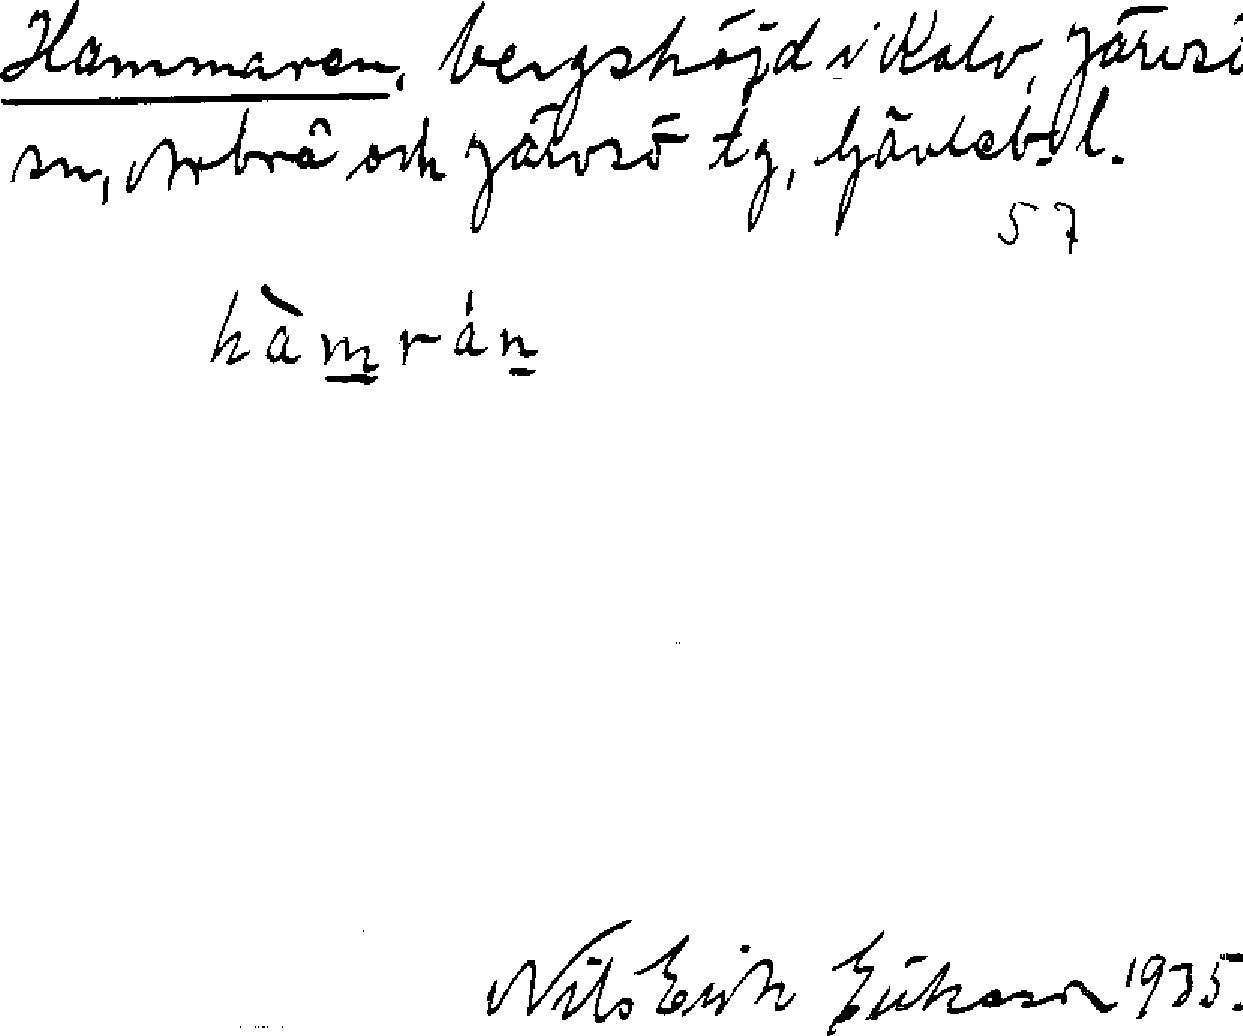 Hammaren, bergshöjd i Kalv, Järvsö
sn, Arbrå och Järvsö tg, Gävleb. l.
57
hàmrán
Nils Erik Eriksson 1935.